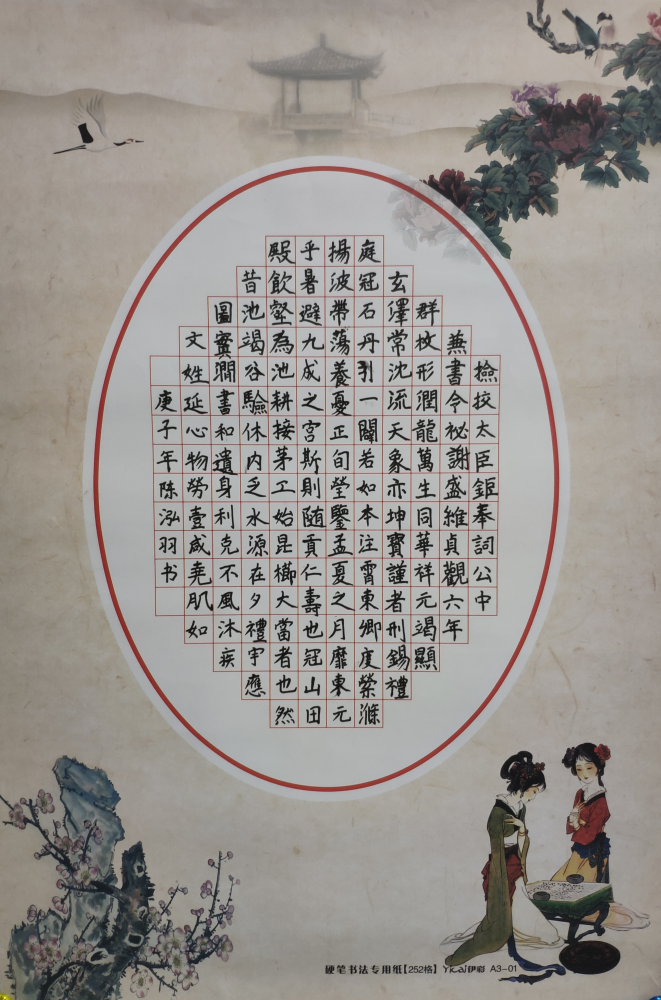 檢挍太臣鉅奉詞公中
兼書令祕謝盛維貞觀六年
群杖形潤龍萬生同華祥元竭顯
玄澤常沈流天象亦坤寶謹者刑錫禮
庭冠石丹引一闢若如本注霄東卿度縈滌
揚波帶蕩養憂正旬瑩鑒孟夏之月靡東元
乎暑避九成之宮斯則随貢仁壽也冠山田
殿飲壑為池耕接茅工始昆櫛大當者也然
昔池竭谷驗休内乏水源在夕禮宇應
圖實澗書和遺身利克不風沐疾
文姓延心物勞壹咸堯肌如
庚子年陈泓羽书
硬笔书法专用纸【252格】 YiCai伊彩 A3-01